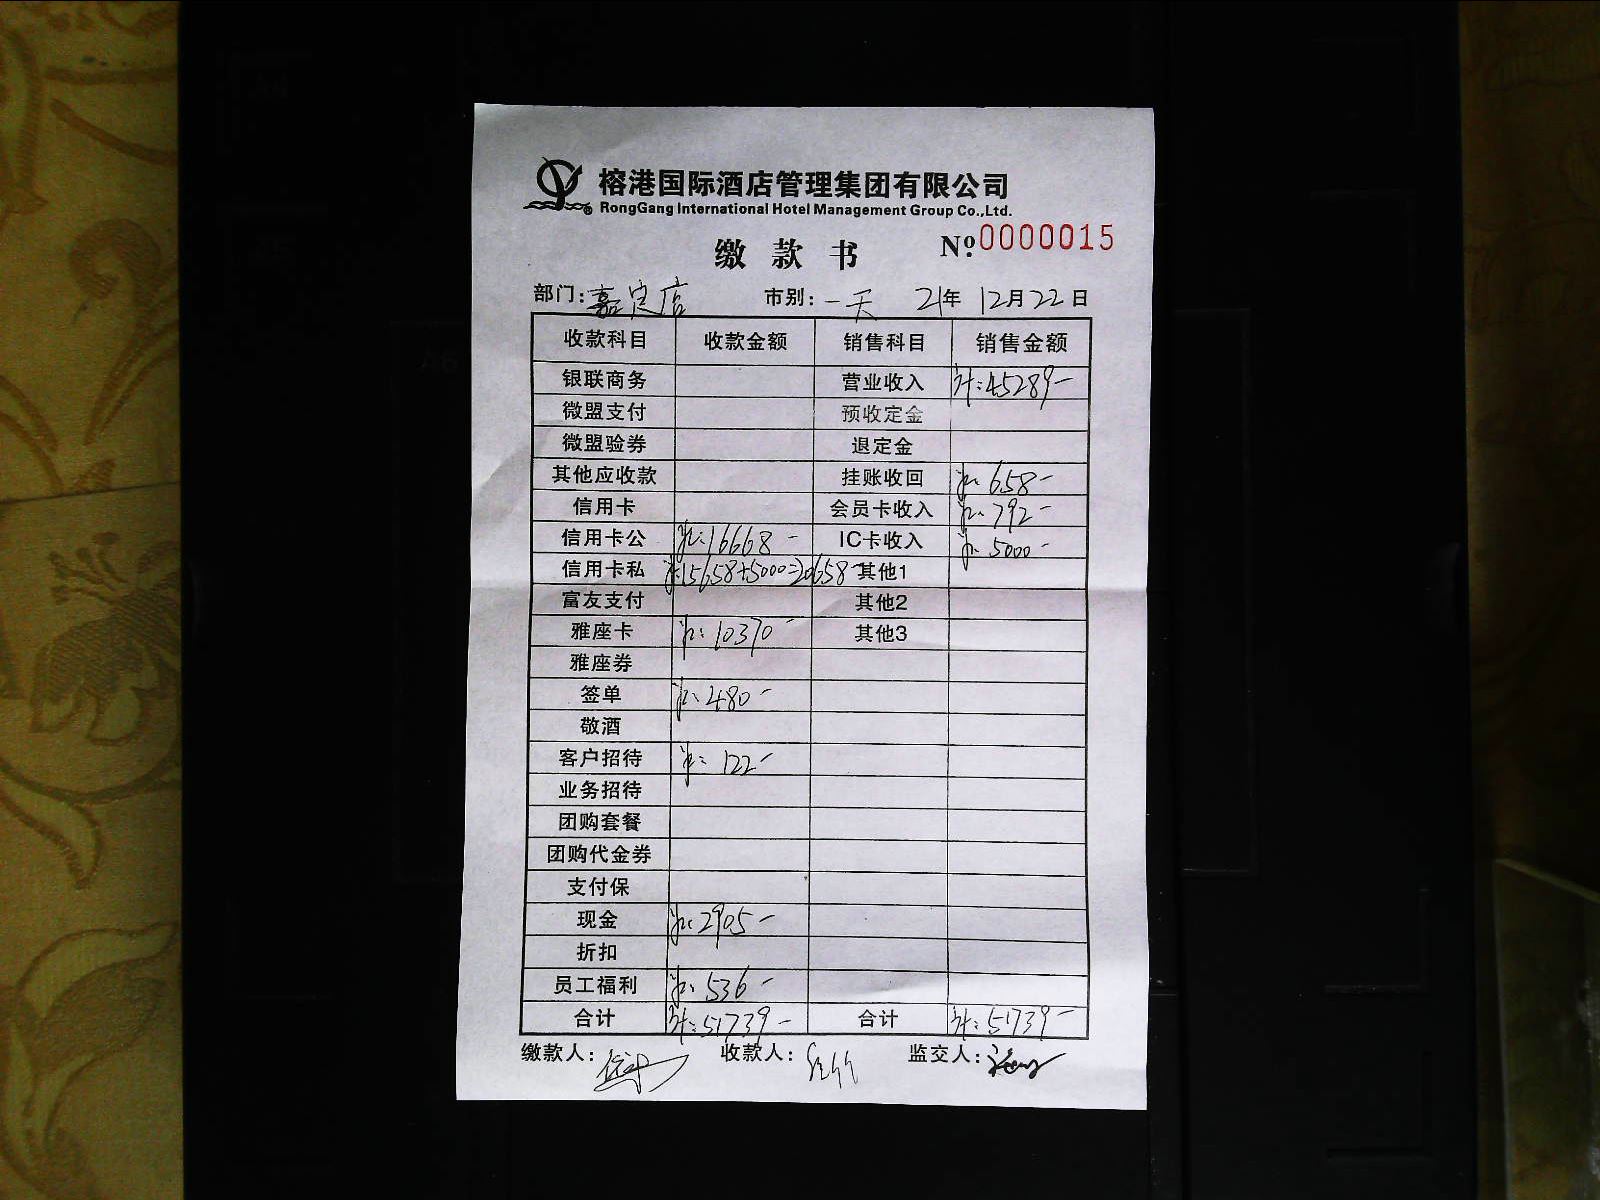 榕港国际酒店管理集团有限公司
RongGang International Hotel Management Group Co.,Ltd.
缴款书 Nº.0000015
部门:嘉定店 市别:一天 21年12月22日
收款科目 收款金额 销售科目 销售金额
银联商务 营业收入 计:45289-
微盟支付 预收定金
微盟验券 退定金
其他应收款 挂账收回 658-
信用卡 会员卡收入 792-
信用卡公 16668- IC卡收入 5000-
信用卡私 15658+5000=20658- 其他1
富友支付 其他2
雅座卡 10370- 其他3
雅座券
签单 480-
敬酒
客户招待 122-
业务招待
团购套餐
团购代金券
支付保
现金 2905-
折扣
员工福利 536-
合计 计:51739- 合计 计:51739-
缴款人: 收款人: 监交人: